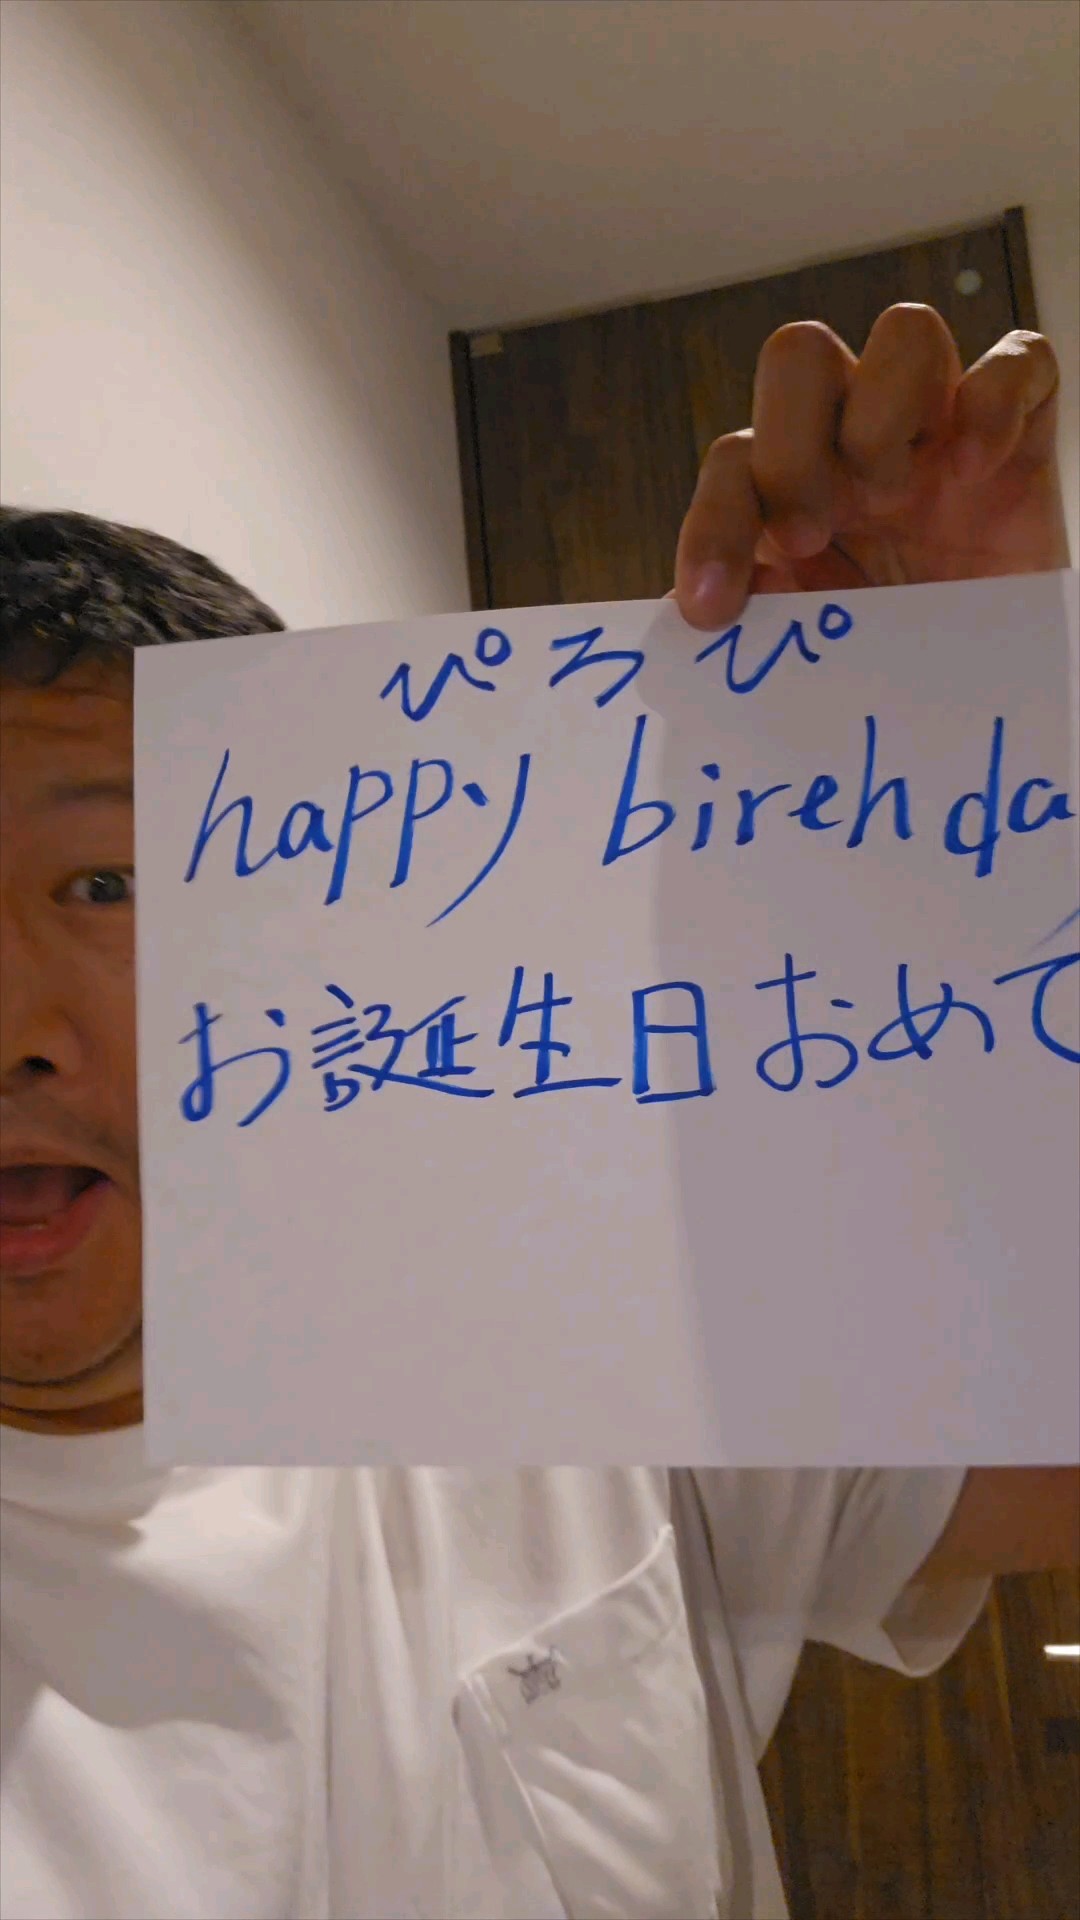 ぴろぴ
happy birehda
お誕生日おめで